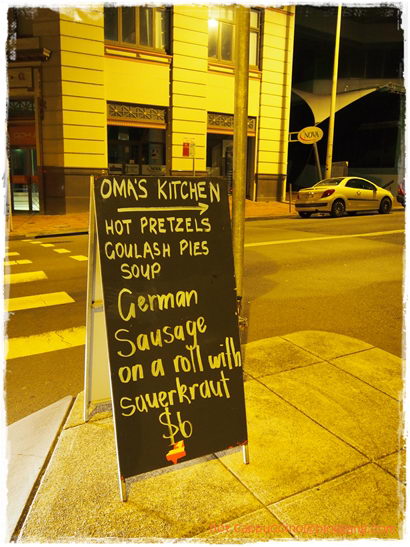 OMA'S KITCHEN
HOT PRETZELS
GOULASH PIES
SOUP
German
Sausage
on a roll with
sauerkraut
$6
NOVA